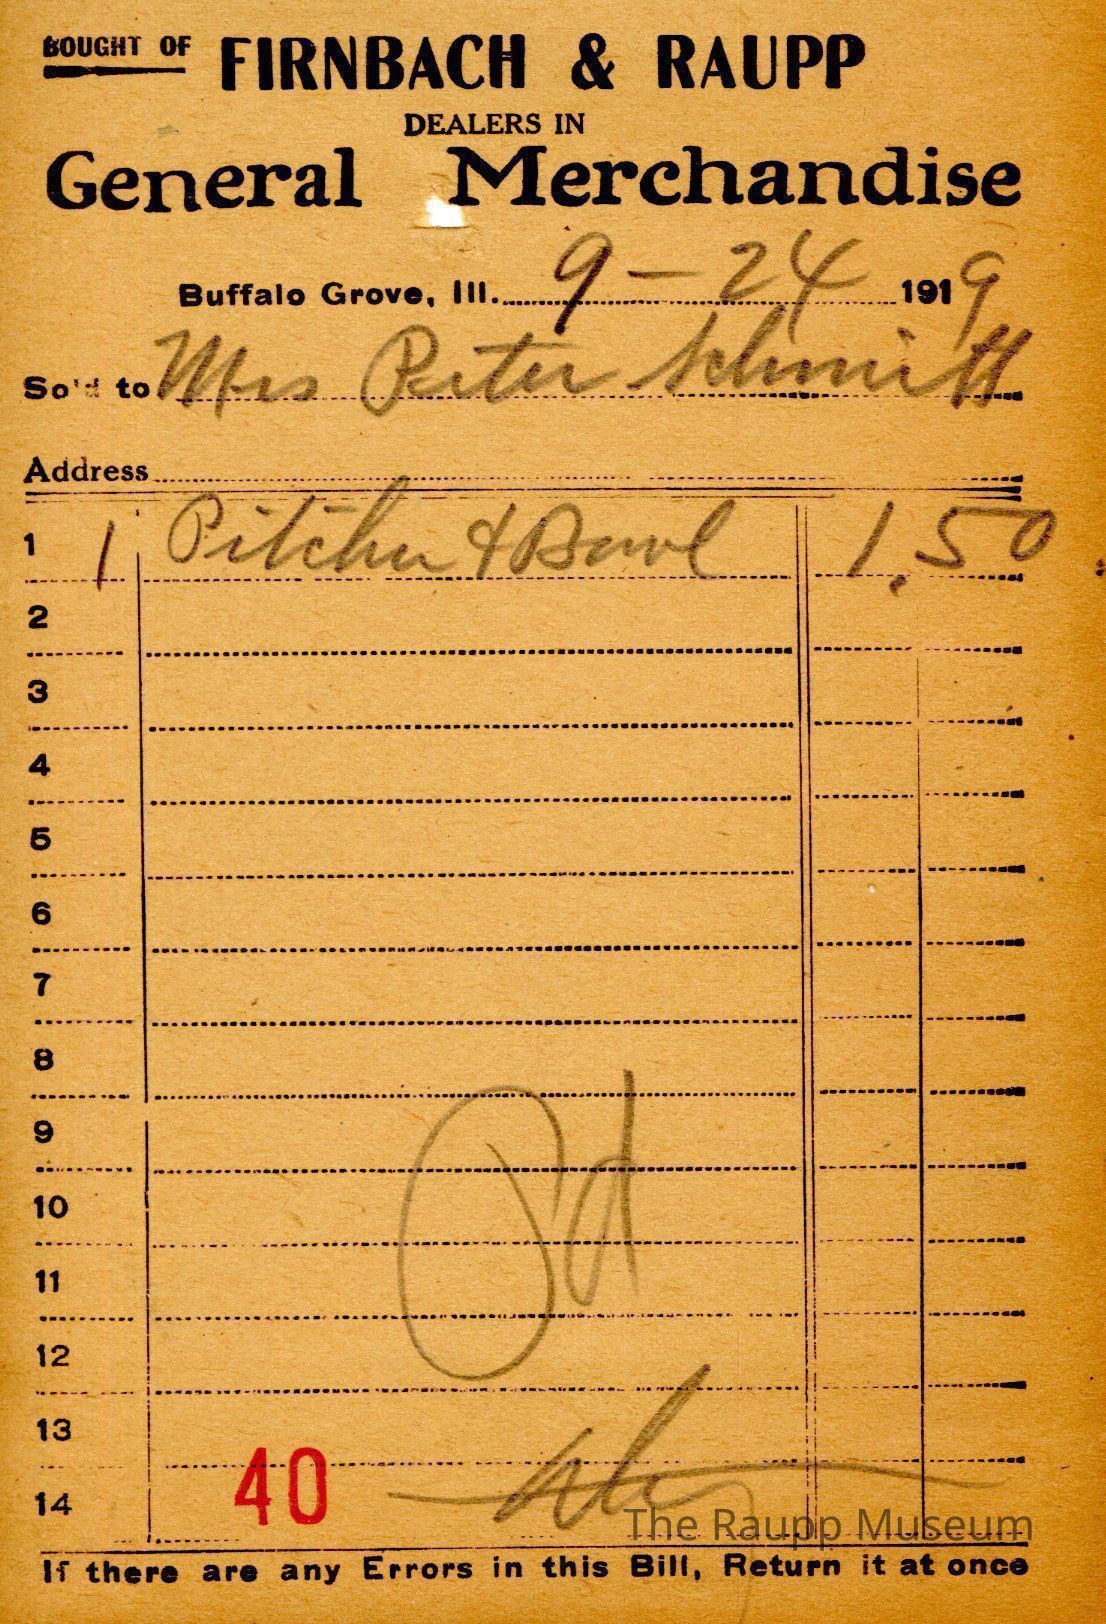 BOUGHT OF FIRNBACH & RAUPP
DEALERS IN
General Merchandise
Buffalo Grove, Ill. 9 - 24 1919
Sold to Mrs Peter Schmitt
Address
1 1 Pitcher & Bowl 1.50
2
3
4
5
6
7
8
9
10
11
12
13
14
Pd
40
The Raupp Museum
If there are any Errors in this Bill, Return it at once